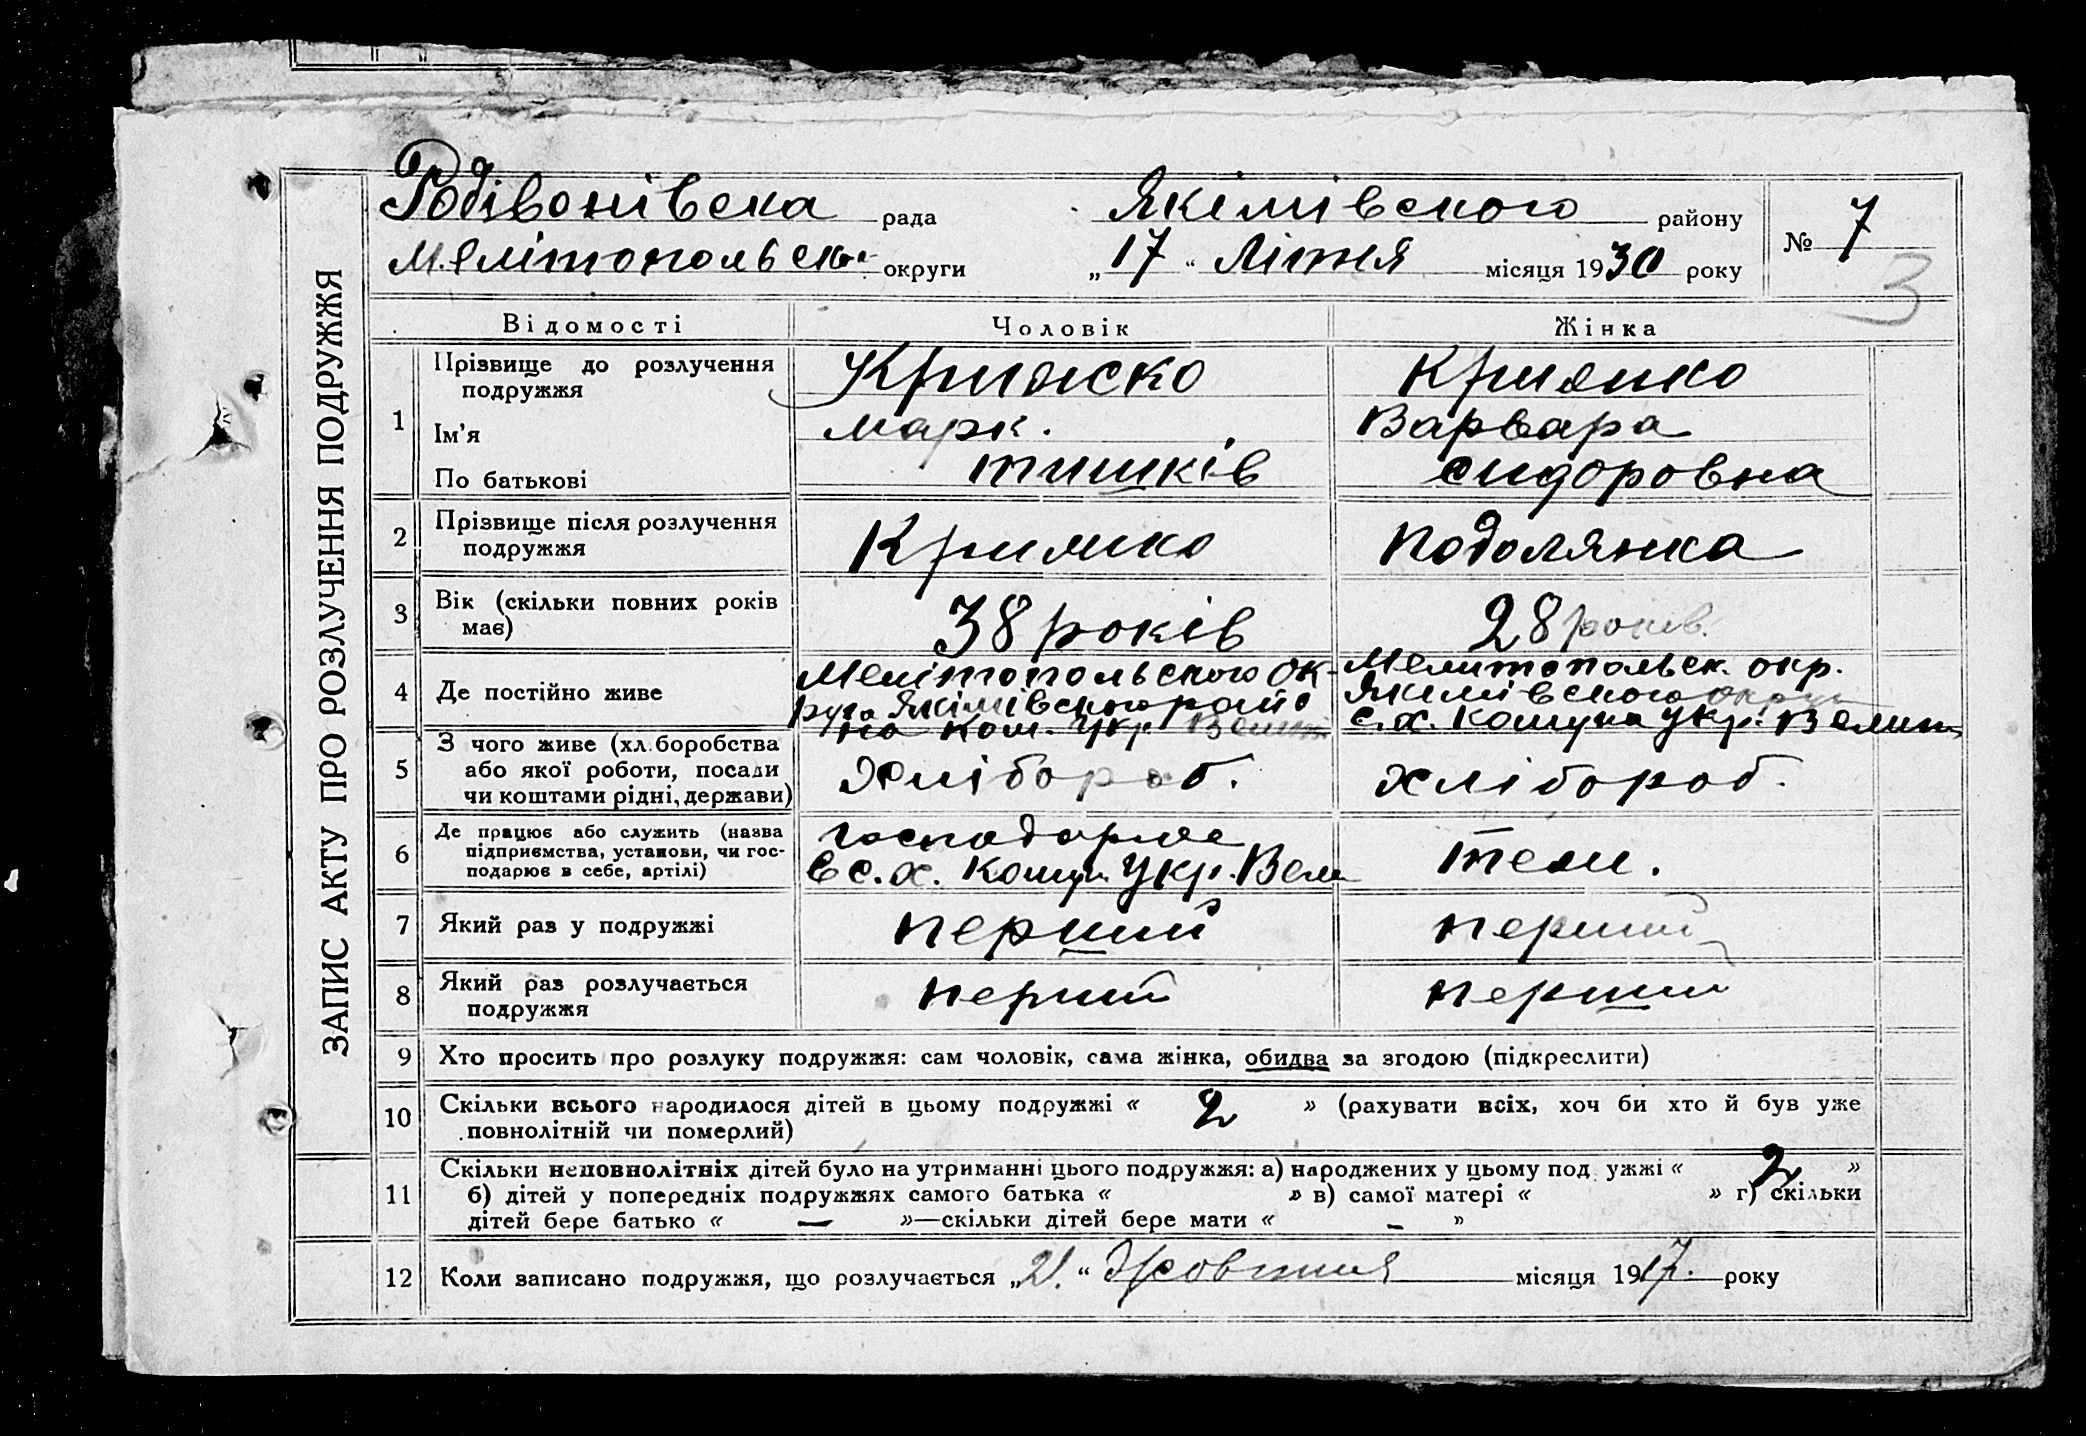 ЗАПИС АКТУ ПРО РОЗЛУЧЕННЯ ПОДРУЖЖЯ
Родівонівска рада Якімівського району № 7
Мелітопольськ округи „17“ Літня місяця 1930 року
3
Відомості Чоловік Жінка
1 Прізвище до розлучення подружжя
Ім'я Марк. Варвара
По батькові Тишків Сидоровна
2 Прізвище після розлучення подружжя Подолянка
3 Вік (скільки повних років має) 38 років 28 років.
4 Де постійно живе
Мелітопольського ок-
руга Якімівського райо
на Ком. Укр.
Мелитопольск. окр.
Якимівського
с.х. Комуна Укр.
5 З чого живе (хл.боробства
або якої роботи, посади
чи коштами рідні, держави)
Хлібороб. Хлібороб.
6 Де працює або служить (назва
підприємства, установи, чи гос-
подарює в себе, артілі)
господарює
в с.х. Комун. Укр. Вел
7 Який раз у подружжі перший перший
8 Який раз розлучається
подружжя
перший перший
9 Хто просить про розлуку подружжя: сам чоловік, сама жінка, обидва за згодою (підкреслити)
10 Скільки всього народилося дітей в цьому подружжі « 2 » (рахувати всіх, хоч би хто й був уже
повнолітній чи померлий)
11 Скільки неповнолітніх дітей було на утриманні цього подружжя: а) народжених у цьому под ужжі « 2 »
б) дітей у попередніх подружжях самого батька « » в) самої матері « » г) скільки
дітей бере батько « — »—скільки дітей бере мати « – »
12 Коли записано подружжя, що розлучається „21.“ Жовтня місяця 1917. року